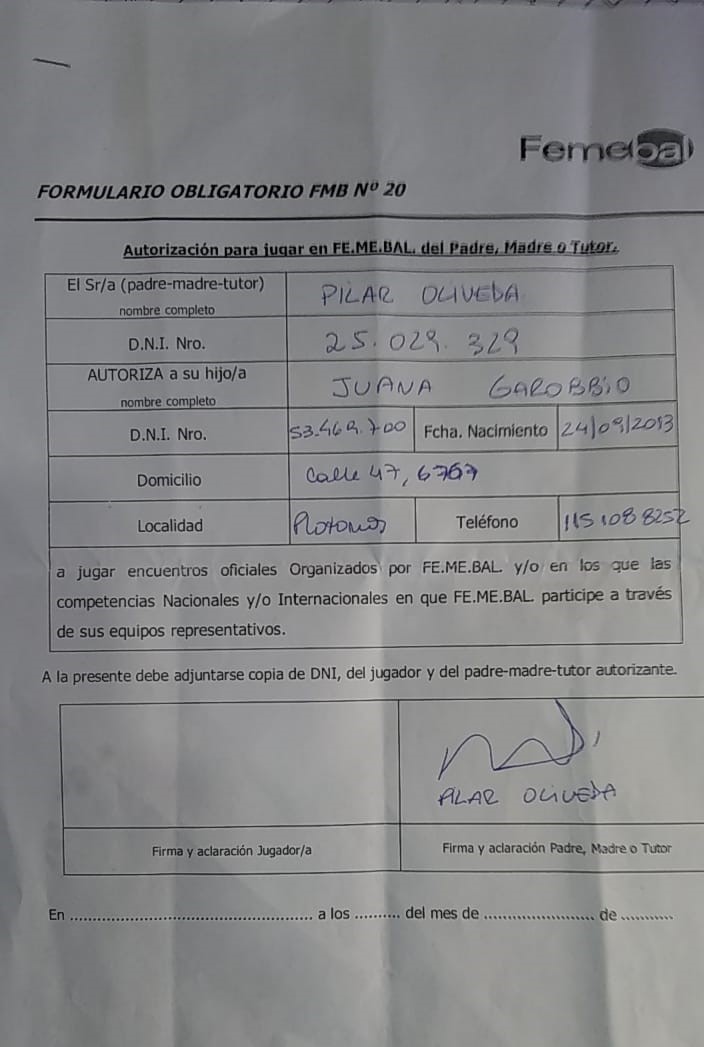 Femebal
FORMULARIO OBLIGATORIO FMB Nº 20
Autorización para jugar en FE.ME.BAL. del Padre, Madre o Tutor.
El Sr/a (padre-madre-tutor)
nombre completo
PILAR OLIVEDA
D.N.I. Nro.
25.029.329
AUTORIZA a su hijo/a
nombre completo
JUANA GAROBBIO
D.N.I. Nro.
53.469.700
Fcha. Nacimiento
24/09/2013
Domicilio
Calle 47, 6767
Localidad
Teléfono
1151088252
a jugar encuentros oficiales Organizados por FE.ME.BAL. y/o en los que las
competencias Nacionales y/o Internacionales en que FE.ME.BAL. participe a través
de sus equipos representativos.
A la presente debe adjuntarse copia de DNI, del jugador y del padre-madre-tutor autorizante.
PILAR OLIVEDA
Firma y aclaración Jugador/a
Firma y aclaración Padre, Madre o Tutor
En ................................................ a los .......... del mes de ........................ de ...........